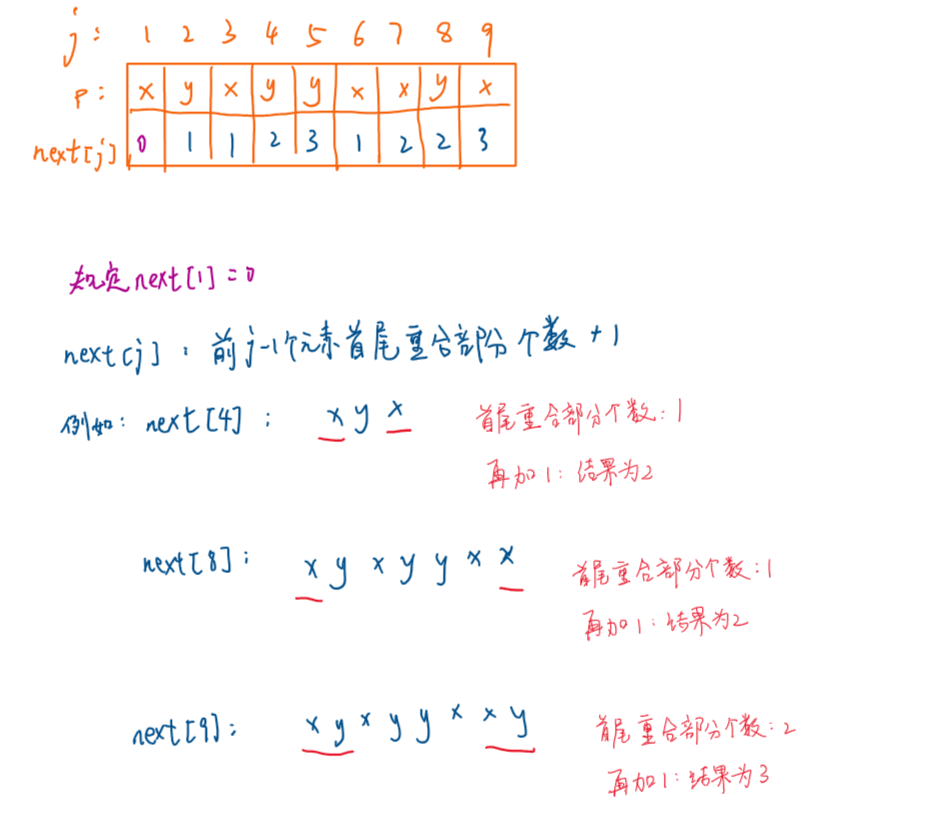 j: 1 2 3 4 5 6 7 8 9
P: x y x y y x x y x
next[j] 0 1 1 2 3 1 2 2 3
规定next[1]=0
next[j]:前j-1个元素首尾重合部分个数+1
例如: next[4]: x y x 首尾重合部分个数:1
再加1:结果为2
next[8]: x y x y y x x 首尾重合部分个数:1
再加1:结果为2
next[9]: x y x y y x x y 首尾重合部分个数:2
再加1:结果为3